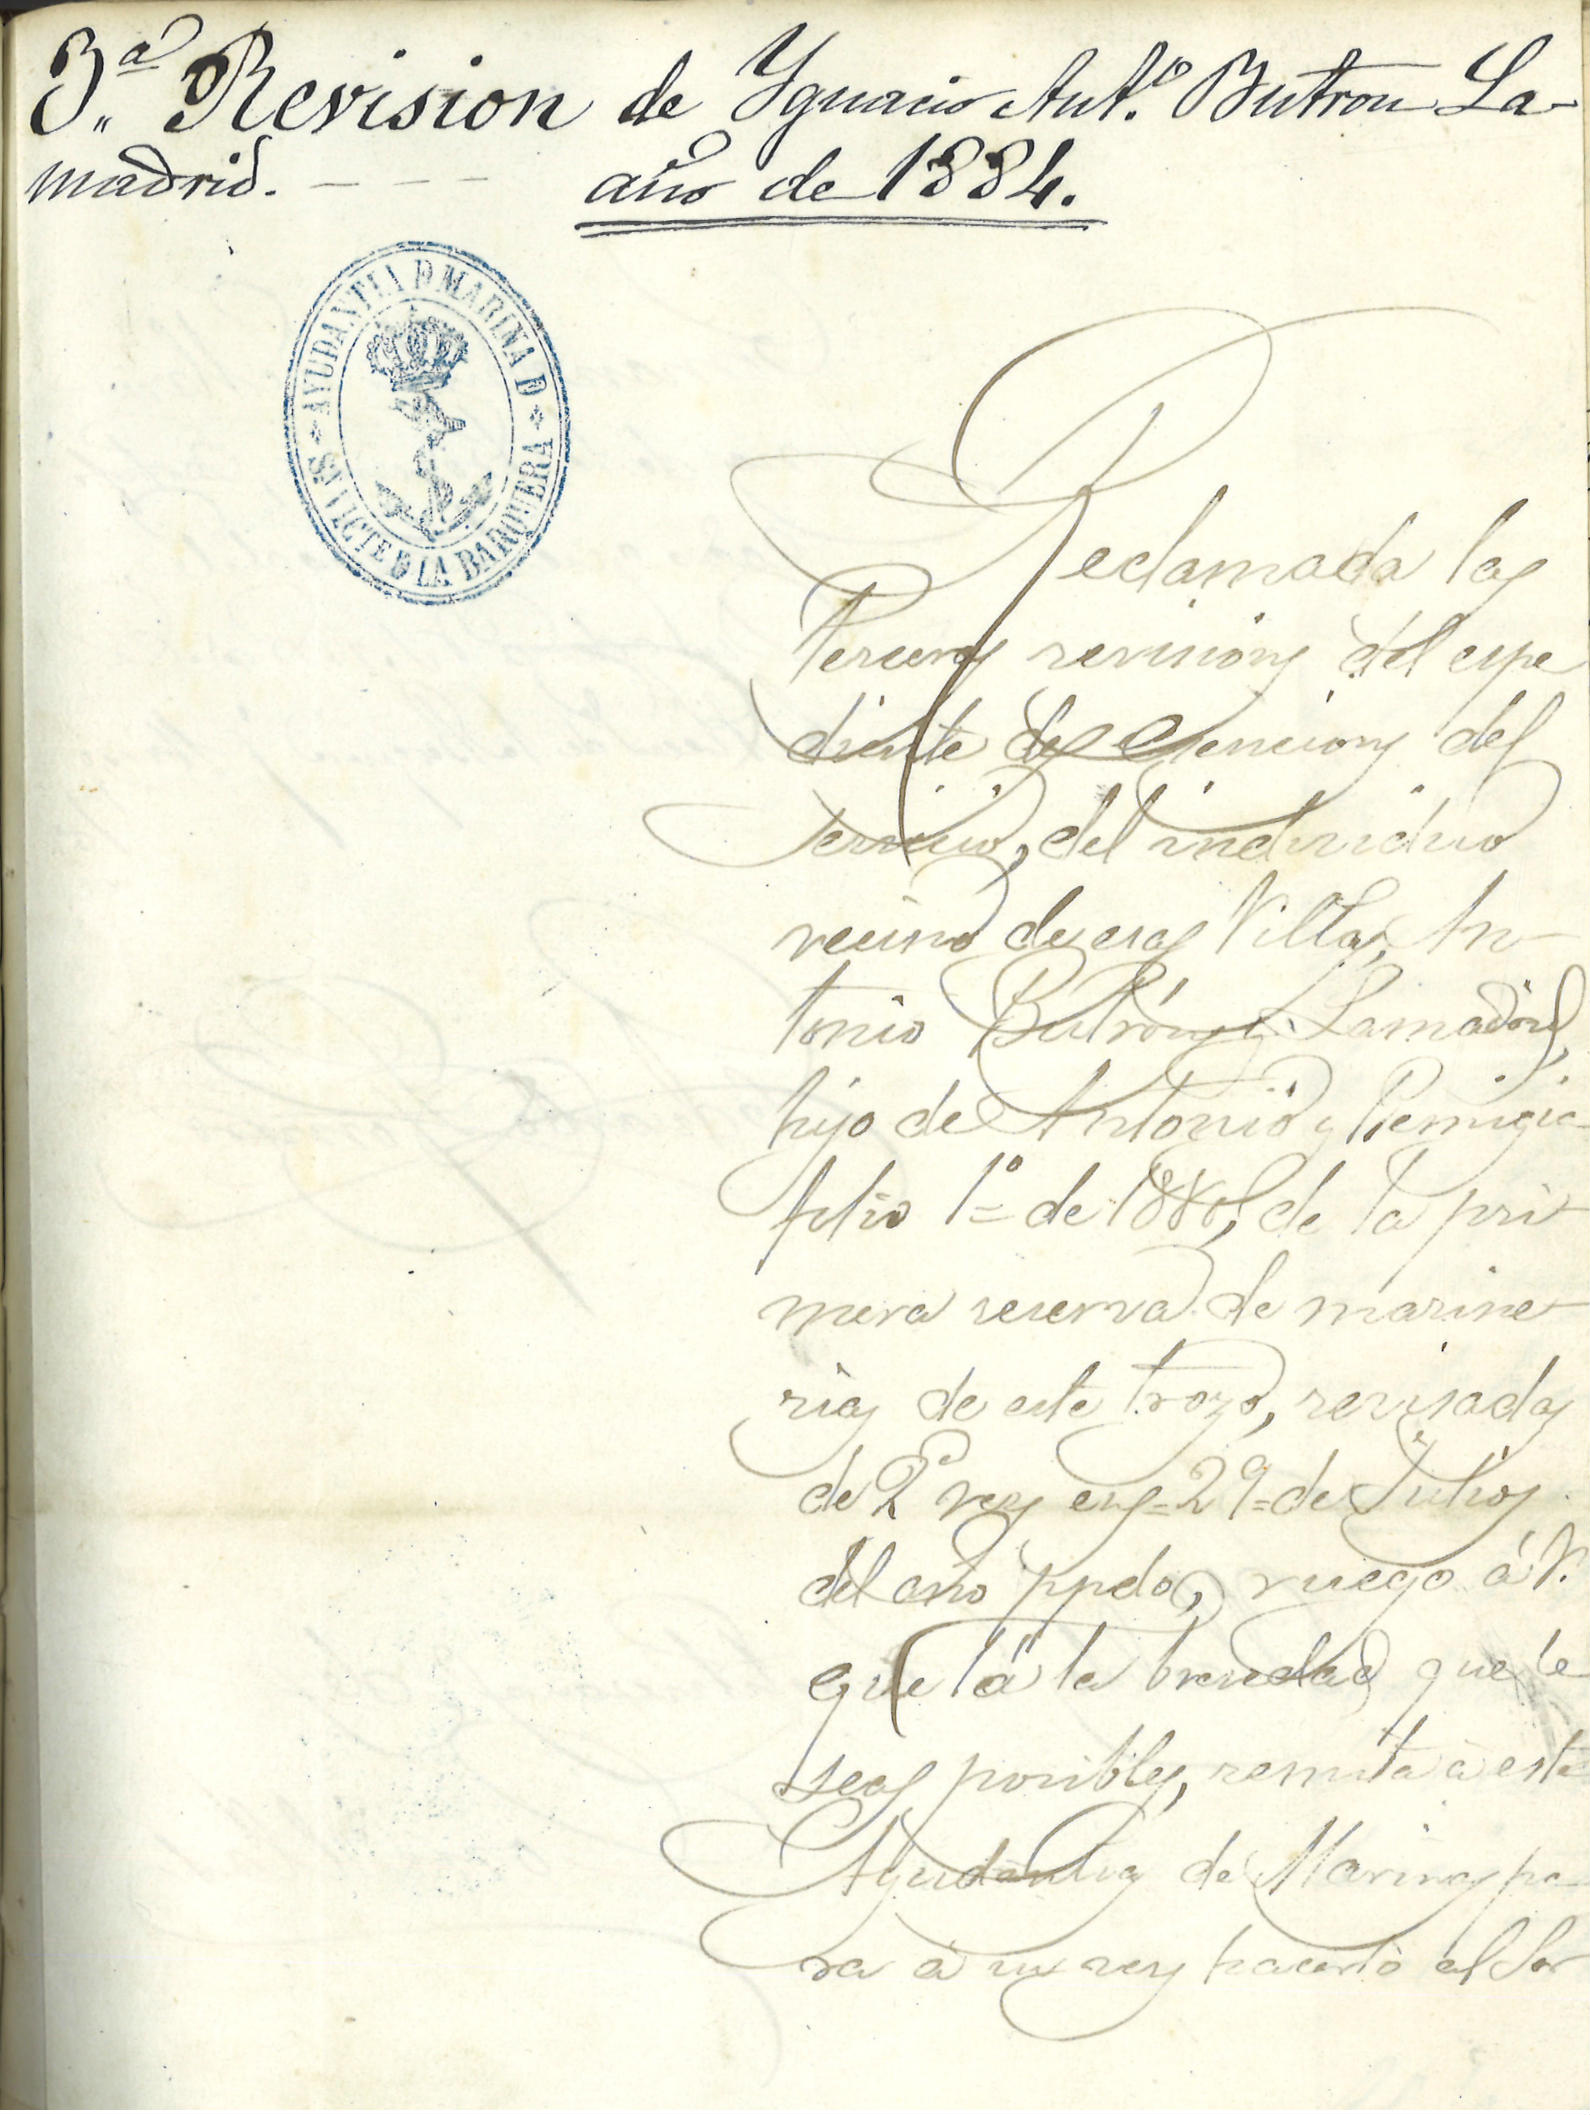 3.ª Revision de Ygnacio Ant.º Butron La-
madrid. - - - año de 1884.
AYUDANTIA D MARINA D
SN VICTE D LA BARQUERA
Reclamada la
tercera revision del espe
diente de esencion del
servicio, del individuo
vecino de esa Villa, An-
tonio Butrón y Lamadrid,
hijo de Antonio y Remigia
folio 1º de 188, de la pri
mera reserva de marine
ria de este trozo, revisada
de 2ª vez en=29=de Julio
del año ppdo, ruego á V.
que á la brevedad que le
sea posible, remita á esta
Ayudantia de Marina pa
ra á su vez hacerlo al Sor